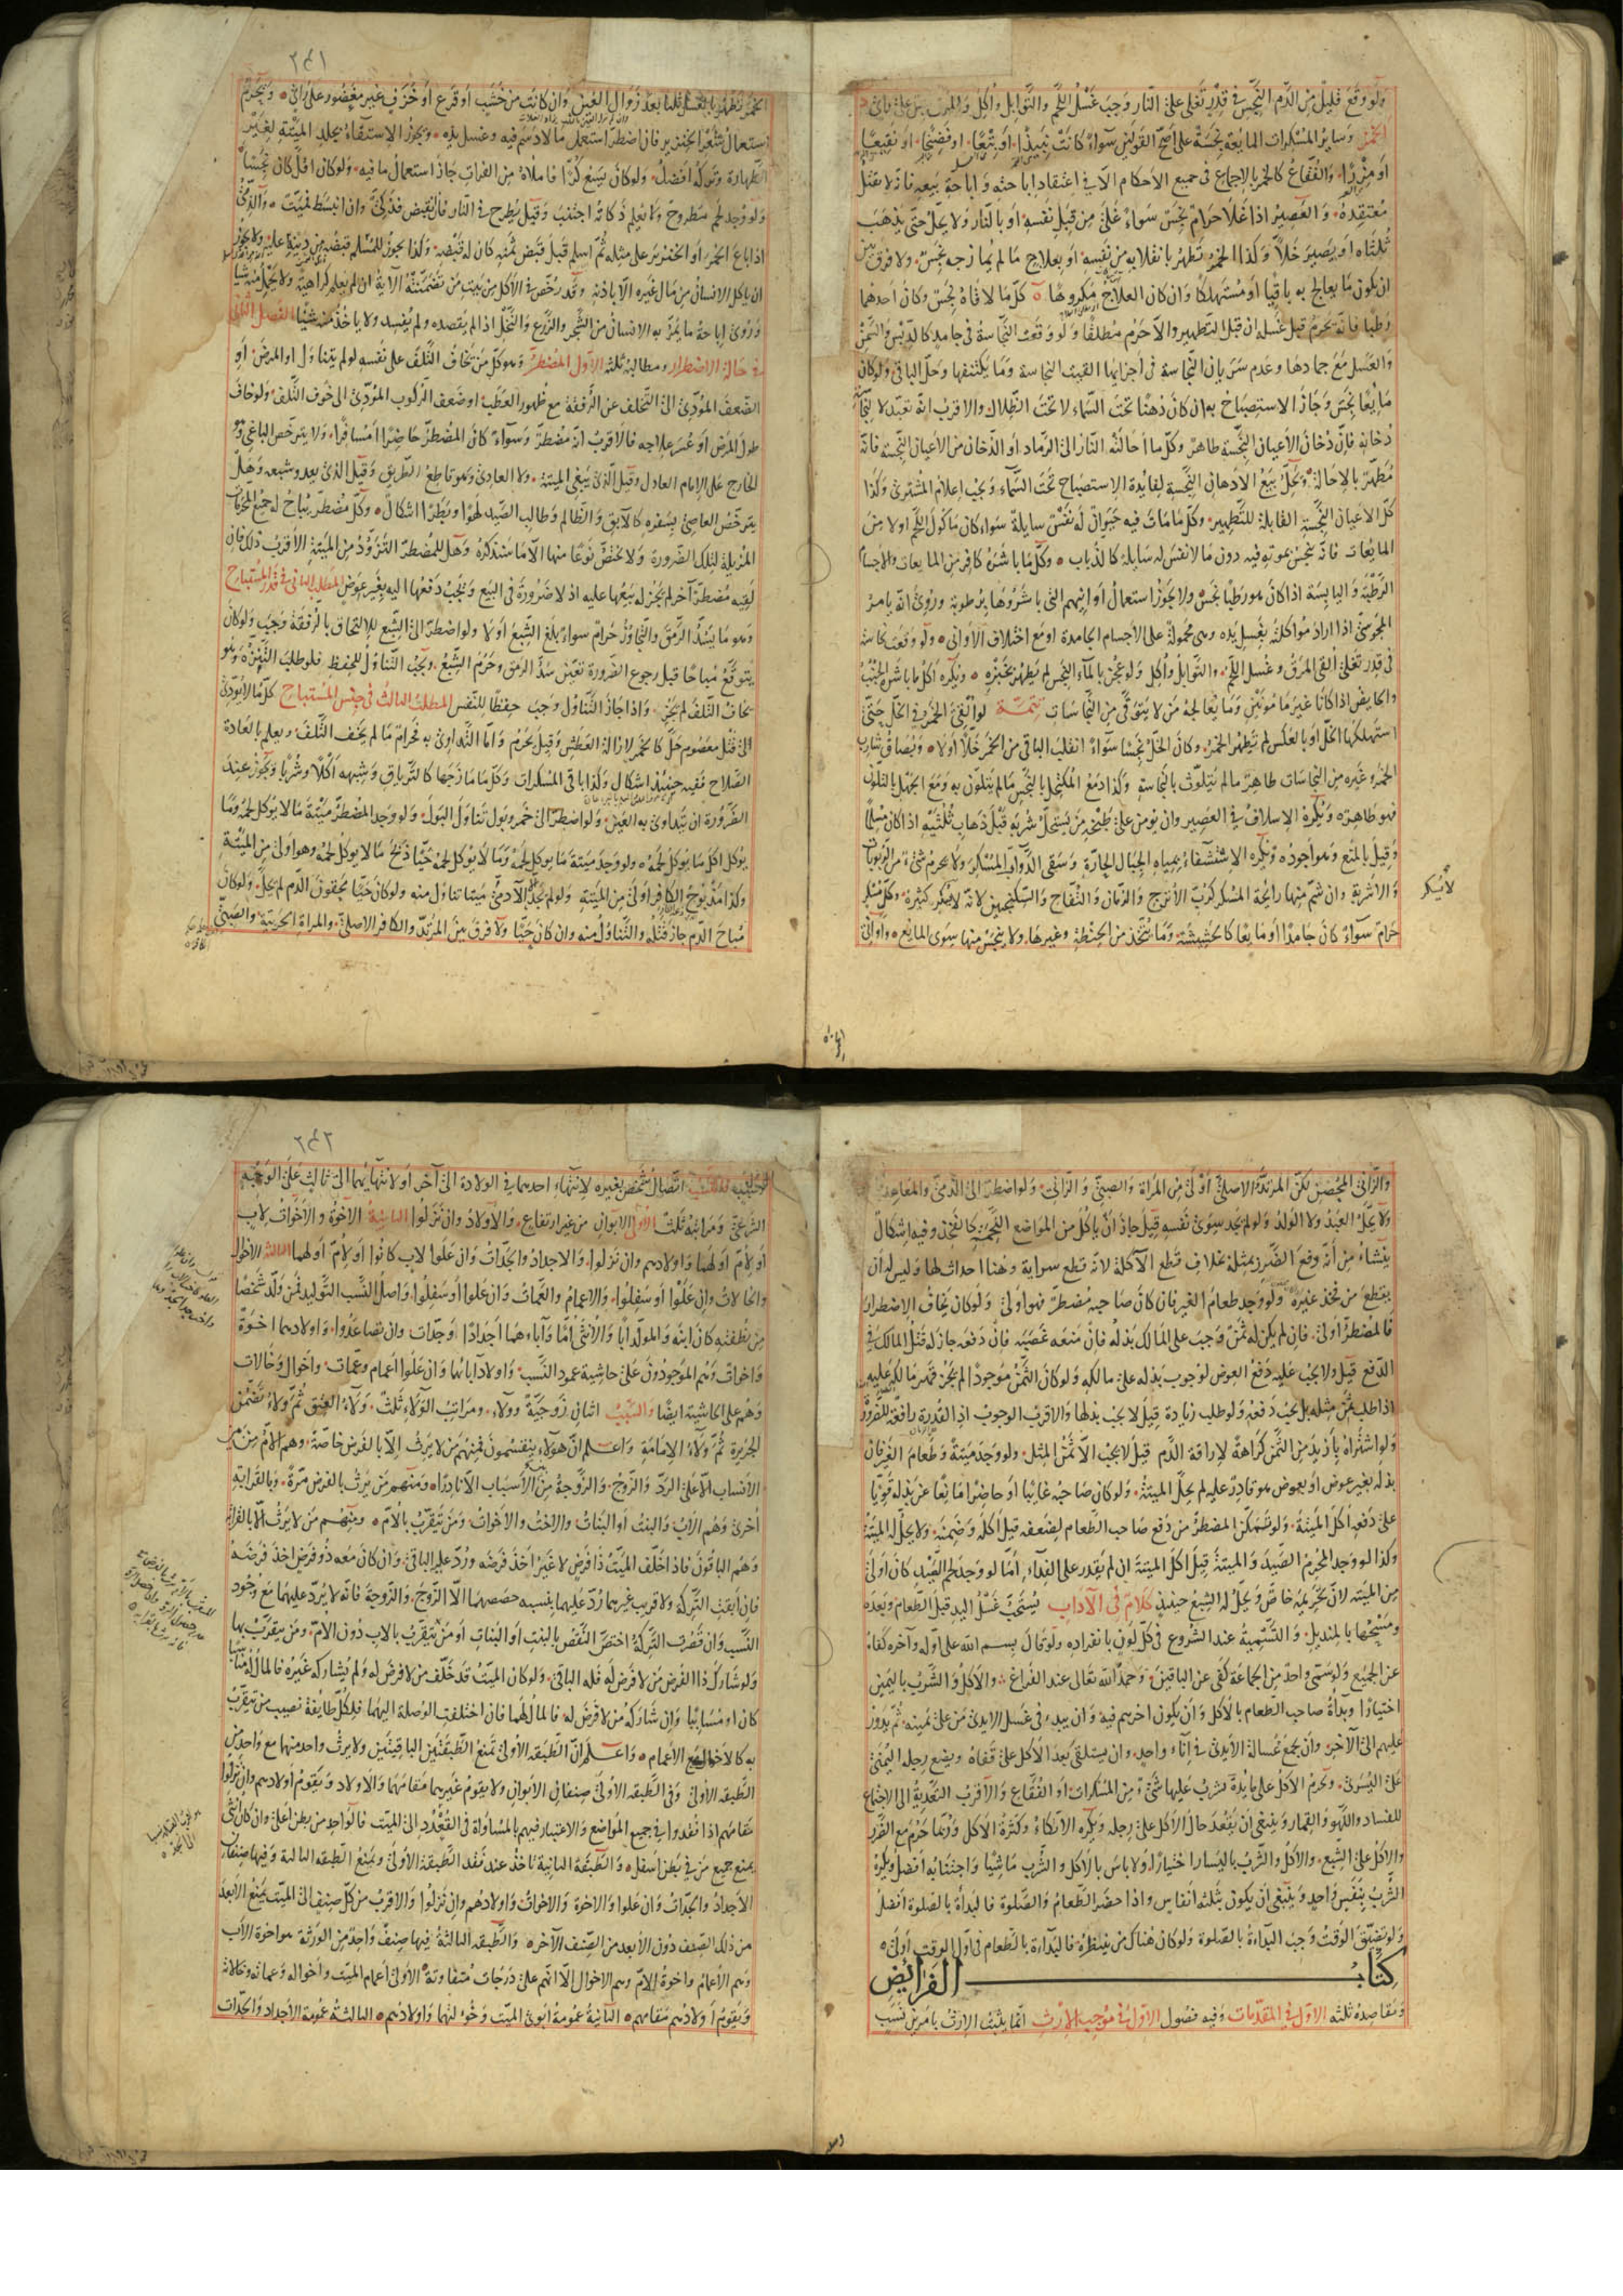 ولو وقع قليل من الدم النجس فى قدر تغلى على النار وجب غسل اللحم والتوابل واكل والمرق
الخمر وساير المسكرات المايعة نجسة على اصح القولين سواء كانت نبيذا او بتعا او فضيخا او نقيعا
او مزرا والفقاع كالخمر بالاجماع فى جميع الاحكام الا فى اعتقاد اباحته واباحة بيعه فانه لا يقتل
معتقده والعصير اذا غلا حرام نجس سواء غلى من قبل نفسه او بالنار ولا يحل حتى يذهب
ثلثاه او يصير خلا وكذا الخمر وتطهر بانقلابه من نفسه او بعلاج ما لم يمازجه نجس ولا فرق بين
ان يكون ما يعالج به باقيا او مستهلكا وان كان العلاج مكروها كل ما لاقاه نجس وكان احدهما
رطبا فانه يحرم قبل غسله ان قبل التطهير والا حرم مطلقا ولو وقعت النجاسة فى جامد كالدبس والسمن
والعسل مع جمادها وعدم سريان النجاسة فى اجزايها القيت النجاسة وما يكتنفها وحل الباقى ولو كان
مايعا نجس وجاز الاستصباح به ان كان دهنا تحت السماء لا تحت الظلال والاقرب انه تعبد لا لنجاسة
دخانه فان دخان الاعيان النجسة طاهر وكل ما احالته النار الى الرماد او الدخان من الاعيان النجسة فانه
مطهر بالاحالة ويحل بيع الادهان النجسة لفايدة الاستصباح تحت السماء ويجب اعلام المشترى وكذا
كل الاعيان النجسة القابلة للتطهير وكل ما مات فيه حيوان له نفس سايلة سواء كان ماكول اللحم او لا من
المايعات فانه ينجس بموته فيه دون ما لا نفس له سايلة كالذباب وكل ما باشره كافر من المايعات والاجسام
الرطبة واليابسة اذا كان هو رطبا نجس ولا يجوز استعمال اوانيهم التى باشروها برطوبة وروى انه يامر
المجوسى اذا اراد مواكلته بغسل يده وهى محمولة على الاجسام الجامدة او مع اختلاف الاوانى ولو وقعت نجاسة
فى قدر تغلى القى المرق وغسل اللحم والتوابل واكل ولو عجن بالماء النجس لم يطهر بخبزه ويكره اكل ما باشره الجنب
والحايض اذا كانا غير مامونين وما يعالجه من لا يتوقى من النجاسات تتمة لو القى الخمر فى الخل حتى
استهلكها الخل او بالعكس لم تطهر الخمر وكان الخل نجسا سواء انقلب الباقى من الخمر خلا او لا وبصاق شارب
الخمر وغيره من النجاسات طاهر ما لم يتلوث بالنجاسة وكذا دمع المكتحل بالنجس ما لم يتلون به ومع الجهل بالتلون
فهو طاهرة ويكره الاسلاف فى العصير وان يومن على طبخه من يستحل شربه قبل ذهاب ثلثيه اذا كان مسلما
وقيل بالمنع وهو اجود ويكره الاستشفاء بمياه الجبال الحارة وسقى الدواب المسكر ولا يحرم شىء من الربوبات
والاشربة وان شم منها رايحة المسكر كرب الاترج والرمان والتفاح والسكنجبين لانه لا يسكر كثيره وكل مسكر
حرام سواء كان جامدا او مايعا كالحشيشة وما يتخذ من الحنطة وغيرها ولا ينجس منها سوى المايع واوانى
لا يسكر
٢٤١
الخمر تطهر بالغسل ثلثا بعد زوال العين وان كانت من خشب او قرع او خزف غير مغضور على راى ويحرم
استعمال شعر الخنزير فان اضطر استعمل ما لا دسم فيه وغسل يده ويجوز الاستقاء بجلد الميتة لغير
الطهارة وتركه افضل ولو كان يسع كرا فاملاه من الفرات جاز استعمال ما فيه ولو كان اقل كان نجسا
ولو وجد لحم مطروح ولا يعلم ذكاته اجتنب وقيل يطرح فى النار فان انقبض فذكى وان انبسط فميت والذمى
اذا باع الخمر او الخنزير على مثله ثم اسلم قبل قبض ثمنه كان له قبضه وكذا يجوز للمسلم قبضه من دينه عليه ولا يجوز
ان ياكل الانسان من مال غيره الا باذنه وقد رخص فى الاكل من بيت من تضمنته الاية ان لم يعلم كراهية ولا يحمل منه شيا
وروى اباحة ما يمر به الانسان من الشجر والزرع والنخل اذا لم يقصده ولم يفسد ولا ياخذ منه شيا الفصل الثانى
فى حالة الاضطرار ومطالبه ثلثة الاول المضطر وهو كل من يخاف التلف على نفسه لو لم يتناول او المرض او
الضعف المودى الى التخلف عن الرفقة مع ظهور العطب او ضعف الركوب المودى الى خوف التلف ولو خاف
طول المرض او عسر علاجه فالاقرب انه مضطر وسواء كان المضطر حاضرا ام مسافرا ولا يترخص الباغى وهو
الخارج على الامام العادل وقيل الذى يبغى الميتة ولا العادى وهو قاطع الطريق وقيل الذى يعدو شبعه وهل
يترخص العاصى بسفره كالابق والظالم وطالب الصيد لهوا وبطرا اشكال وكل مضطر يباح له جميع المحرمات
المزيلة لتلك الضرورة ولا يختص نوعا منها الا ما سنذكره وهل للمضطر التزود من الميتة الاقرب ذلك فان
لقيه مضطر اخر لم يجز له بيعها عليه اذ لا ضرورة فى البيع ويجب دفعها اليه بغير عوض المطلب الثانى فى قدر المستباح
وهو ما يسد الرمق والتجاوز حرام سواء بلغ الشبع او لا ولو اضطر الى الشبع للالتحاق بالرفقة وجب ولو كان
يتوقع مباحا قبل رجوع الضرورة تعين سد الرمق وحرم الشبع ويجب التناول للحفظ فلو طلب التنزه وهو
يخاف التلف لم يجز واذا جاز التناول وجب حفظا للنفس المطلب الثالث فى جنس المستباح كل ما لا يودى
الى قتل معصوم حل كالخمر لازالة العطش وقيل يحرم واما التداوى به فحرام ما لم يخف التلف ويعلم بالعادة
الصلاح ففيه حينئذ اشكال وكذا باقى المسكرات وكل ما مازجها كالترياق وشبهه اكلا وشربا ويجوز عند
الضرورة ان يتداوى به العين ولو اضطر الى خمر وبول تناول البول ولو وجد المضطر ميتة ما لا يوكل لحمه وما
يوكل اكل ما يوكل لحمه ولو وجد ميتة ما يوكل لحمه وما لا يوكل لحمه حيا ذبح ما لا يوكل لحمه وهو اولى من الميتة
وكذا مذبوح الكافر اولى من الميتة ولو لم يجد الا الادمى ميتا تناول منه ولو كان حيا محقون الدم لم يحل ولو كان
مباح الدم جاز قتله والتناول منه وان كان حيا ولا فرق بين المرتد والكافر الاصلى والمراة الحربية والصبى
والزانى المحصن لكن المرتد والاصلى اولى من المراة والصبى والزانى ولو اضطر الى الذمى والمعاهد
ولا يحل العبد ولا الولد ولو لم يجد سوى نفسه قيل جاز ان ياكل من المواضع اللحمة كالفخذ وفيه اشكال
ينشا من انه دفع الضرر بمثله بخلاف قطع الاكلة لانه قطع سراية وهنا احداث لها وليس له ان
يقطع من فخذ غيره ولو وجد طعام الغير فان كان صاحبه مضطرا فهو اولى ولو كان يخاف الاضطرار
فالمضطر اولى فان لم يكن له ثمن وجب على المالك بذله فان منعه غصبه فان دفعه جاز له قتل المالك فى
الدفع قيل ولا يجب عليه دفع العوض لوجوب بذله على مالكه ولو كان الثمن موجودا لم يجز قهر مالكه عليه
اذا طلب ثمن مثله بل يجب دفعه ولو طلب زيادة قيل لا يجب بذلها والاقرب الوجوب اذ القدرة رافعة للضرورة
ولو اشتراه بازيد من الثمن كراهة لاراقة الدم قيل لا يجب الا ثمن المثل ولو وجد ميتة وطعام الغير فان
بذله بغير عوض او بعوض هو قادر عليه لم يحل الميتة ولو كان صاحبه غايبا او حاضرا مانعا عن بذله قويا
على دفعه اكل الميتة ولو تمكن المضطر من دفع صاحب الطعام لضعفه قيل اكله وضمنه ولا يحل له الميتة
وكذا لو وجد المحرم الصيد والميتة قيل اكل الميتة ان لم يقدر على الفداء اما لو وجد لحم الصيد كان اولى
من الميتة لان تحريمه خاص ويحل له الشبع حينئذ كلام فى الاداب يستحب غسل اليد قبل الطعام وبعده
ومسحها بالمنديل والتسمية عند الشروع فى كل لون بانفراده ولو قال بسم الله على اوله واخره كفاه
عن الجميع ولو سمى واحد من الجماعة كفى عن الباقين وحمد الله تعالى عند الفراغ والاكل والشرب باليمين
اختيارا وبداة صاحب الطعام بالاكل وان يكون اخرهم فيه وان يبدء فى غسل الايدى من على يمينه ثم يدور
عليهم الى الاخر وان يجمع غسالة الايدى فى اناء واحد وان يستلقى بعد الاكل على قفاه ويضع رجله اليمنى
على اليسرى ويحرم الاكل على مايدة يشرب عليها شىء من المسكرات او الفقاع والاقرب التعدية الى الاجتماع
للفساد واللهو والقمار وينبغى ان يقعد حال الاكل على رجله ويكره الاتكاء وكثرة الاكل وربما حرم مع الضرر
والاكل على الشبع والاكل والشرب باليسار اختيارا ولا باس بالاكل والشرب ماشيا واجتنابه افضل ويكره
الشرب بنفس واحد وينبغى ان يكون بثلثة انفاس واذا حضر الطعام والصلوة فالبداة بالصلوة افضل
ولو تضيق الوقت وجب البداءة بالصلوة ولو كان هناك من ينتظره فالبداءة بالطعام فى اول الوقت اولى
كتاب الفرايض
ومقاصده ثلثة الاول فى المقدمات وفيه فصول الاول فى موجب الارث انما يثبت الارث بامرين نسب
٢٤٢
وسبب فالنسب اتصال شخص بغيره لانتهاء احدهما فى الولادة الى اخر او لانتهايهما الى ثالث على الوجه
الشرعى ومراتبه ثلث الاولى الابوان من غير ارتفاع والاولاد وان نزلوا الثانية الاخوة والاخوات لاب
او لام او لهما واولادهم وان نزلوا والاجداد والجدات وان علوا لاب كانوا او لام او لهما الثالثة الاخوال
والخالات وان علوا او سفلوا والاعمام والعمات وان علوا او سفلوا واصل النسب التوليد فمن ولد شخصا
من نطفته كان ابنه والمولد ابا والانثى اما واباءهما اجدادا وجدات وان تصاعدوا واولادهما اخوة
واخوات وهم الموجودون على حاشية عمود النسب واولاد ابائهما وان علوا اعمام وعمات واخوال وخالات
وهم على الحاشية ايضا والسبب اثنان زوجية وولاء ومراتب الولاء ثلث ولاء العتق ثم ولاء تضمن
الجريرة ثم ولاء الامامة واعلم ان هولاء ينقسمون فمنهم من لا يرث الا بالفرض خاصة وهم الام من بين
الانساب الا على الرد والزوج والزوجة من الاسباب الا نادرا ومنهم من يرث بالفرض مرة وبالقرابة
اخرى وهم الاب والبنت او البنات والاخت والاخوات ومن يتقرب بالام ومنهم من لا يرث الا بالقرابة
وهم الباقون فاذا خلف الميت ذا فرض لا غير اخذ فرضه ورد عليه الباقى وان كان معه ذو فرض اخذ فرضه
فان ابقت التركة ولا قريب غيرهما رد عليهما بنسبة حصصهما الا الزوج والزوجة فانه لا يرد عليهما مع وجود
النسب وان قصرت التركة اختص النقص بالبنت او البنات او من يتقرب بالاب دون الام ومن يتقرب بها
ولو شارك ذا الفرض من لا فرض له فله الباقى ولو كان الميت قد خلف من لا فرض له ولم يشاركه غيره فالمال له مناسبا
كان او مسابيا وان شاركه من لا فرض له فالمال لهما فان اختلفت الوصلة اليهما فلكل طايفة نصيب من يتقرب
به كالاخوال مع الاعمام واعلم ان الطبقة الاولى تمنع الطبقتين الباقيتين ولا يرث واحد منهما مع واحد من
الطبقة الاولى وفى الطبقة الاولى صنفان الابوان ولا يقوم غيرهما مقامهما والاولاد ويقوم اولادهم وان نزلوا
مقامهم اذا فقدوا فى جميع المواضع والاعتبار فيهم بالمساواة فى القعدد الى الميت فالواحد من بطن اعلى وان كان انثى
يمنع جميع من فى بطن اسفل والطبقة الثانية تاخذ عند فقد الطبقة الاولى وتمنع الطبقة الثالثة وفيها صنفان
الاجداد والجدات وان علوا والاخوة والاخوات واولادهم وان نزلوا والاقرب من كل صنف الى الميت يمنع الابعد
من ذلك الصنف دون الابعد من الصنف الاخر والطبقة الثالثة فيها صنف واحد من الورثة هو اخوة الاب
وهم الاعمام واخوة الام وهم الاخوال الا انهم على درجات متفاوتة الاولى اعمام الميت واخواله وعماته وخالاته
ويقوم اولادهم مقامهم الثانية عمومة ابوى الميت وخوولتهما واولادهم الثالثة عمومة الاجداد والجدات